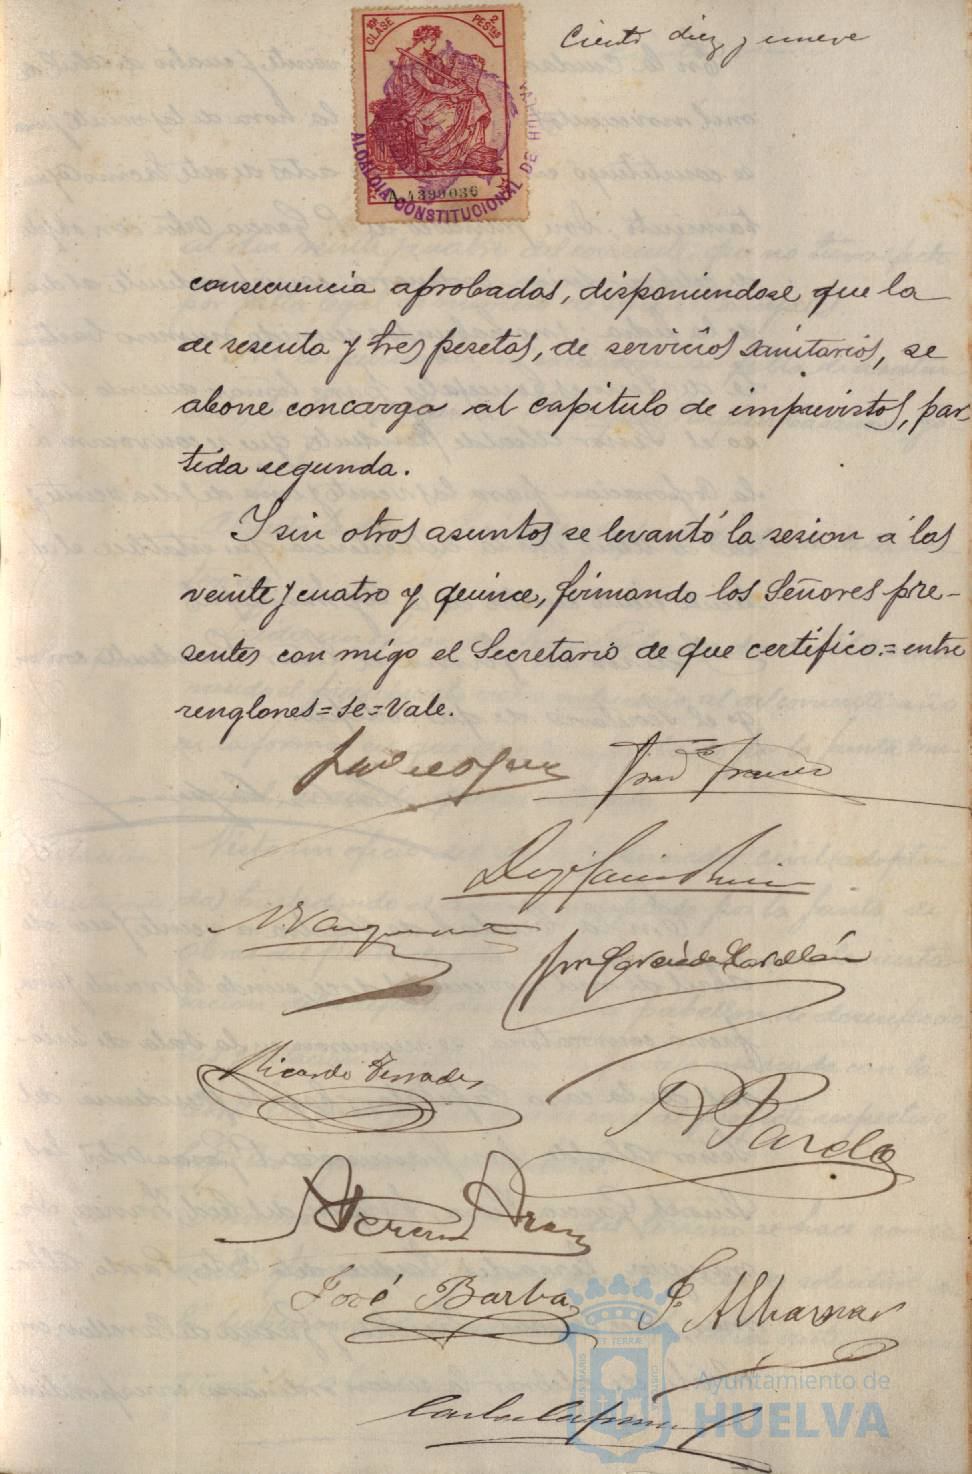 Ciento diez y nueve
10ª CLASE 2 PESTAS
A.4399036
ALCALDIA CONSTITUCIONAL DE HUELVA
consecuencia aprobadas, disponiendose que la
de sesenta y tres pesetas, de servicios sanitarios, se
abone con cargo al capitulo de imprevistos, par
tida segunda.
Y sin otros asuntos se levantó la sesion á las
veinte y cuatro y quince, firmando los Señores pre-
sentes conmigo el Secretario de que certifico.=entre
renglones=se=Vale.
Ricardo Terrades
A Pardo
José Barba
Ayuntamiento de
HUELVA